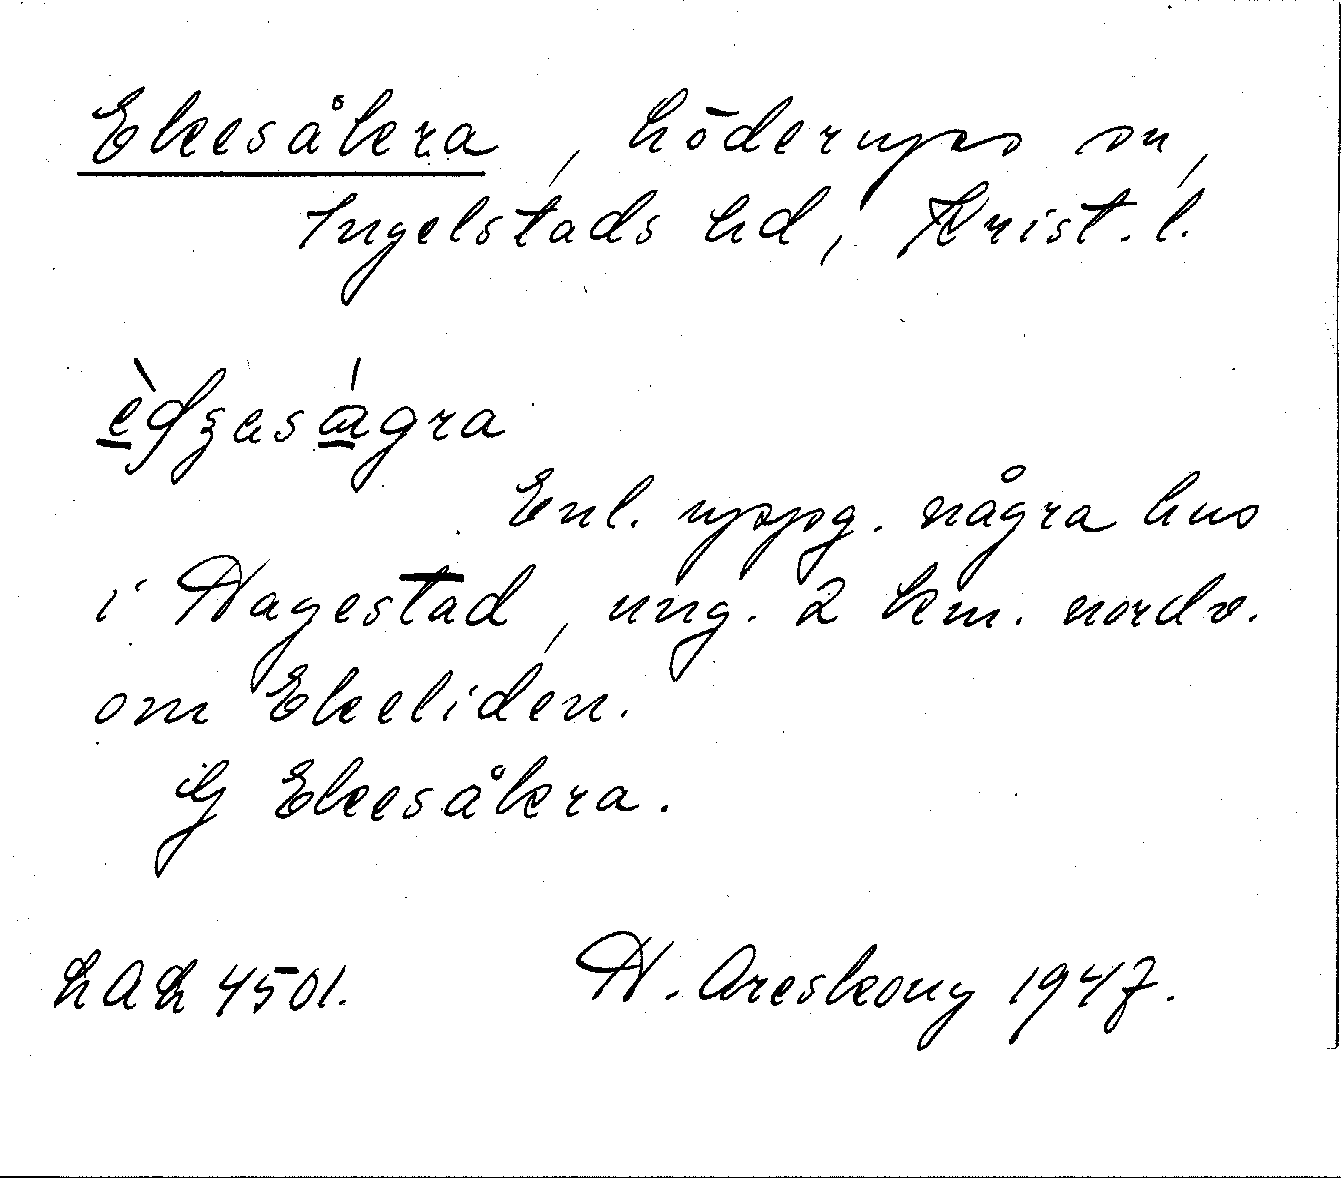 Ekesåkra, Löderups sn,
Ingelstads hd, Krist. l.
Enl. uppg. några hus
i Hagestad, ung. 2 km. nordv.
om Ekeliden.
G Ekesåkra.
LAL 4501. H. Areskoug 1947.